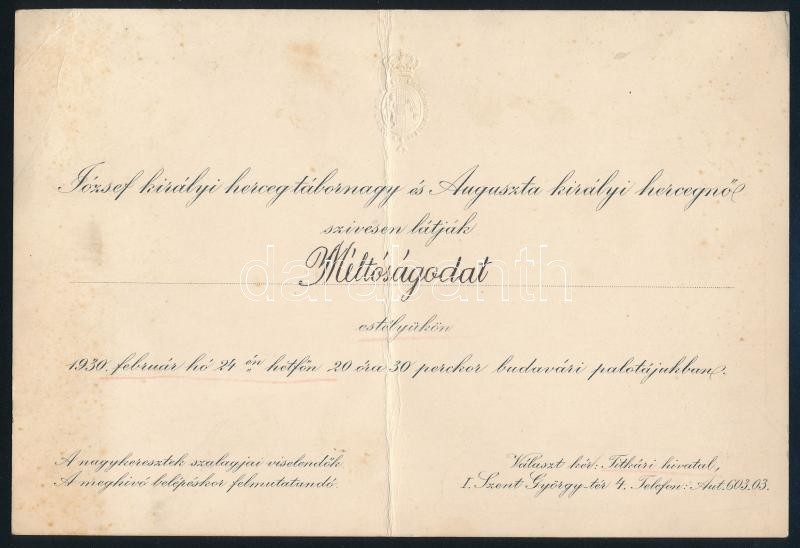 József királyi herceg tábornagy és Auguszta királyi hercegnő
szivesen látják
Méltóságodat
darabanth
estélyükön
1930. február hó 24 én hétfőn 20 óra 30 perckor budavári palotájukban.
A nagykeresztek szalagjai viselendők.
A meghivó belépéskor felmutatandó.
Választ kér: Titkári hivatal,
I. Szent György-tér 4. Telefon: Aut. 603.03.